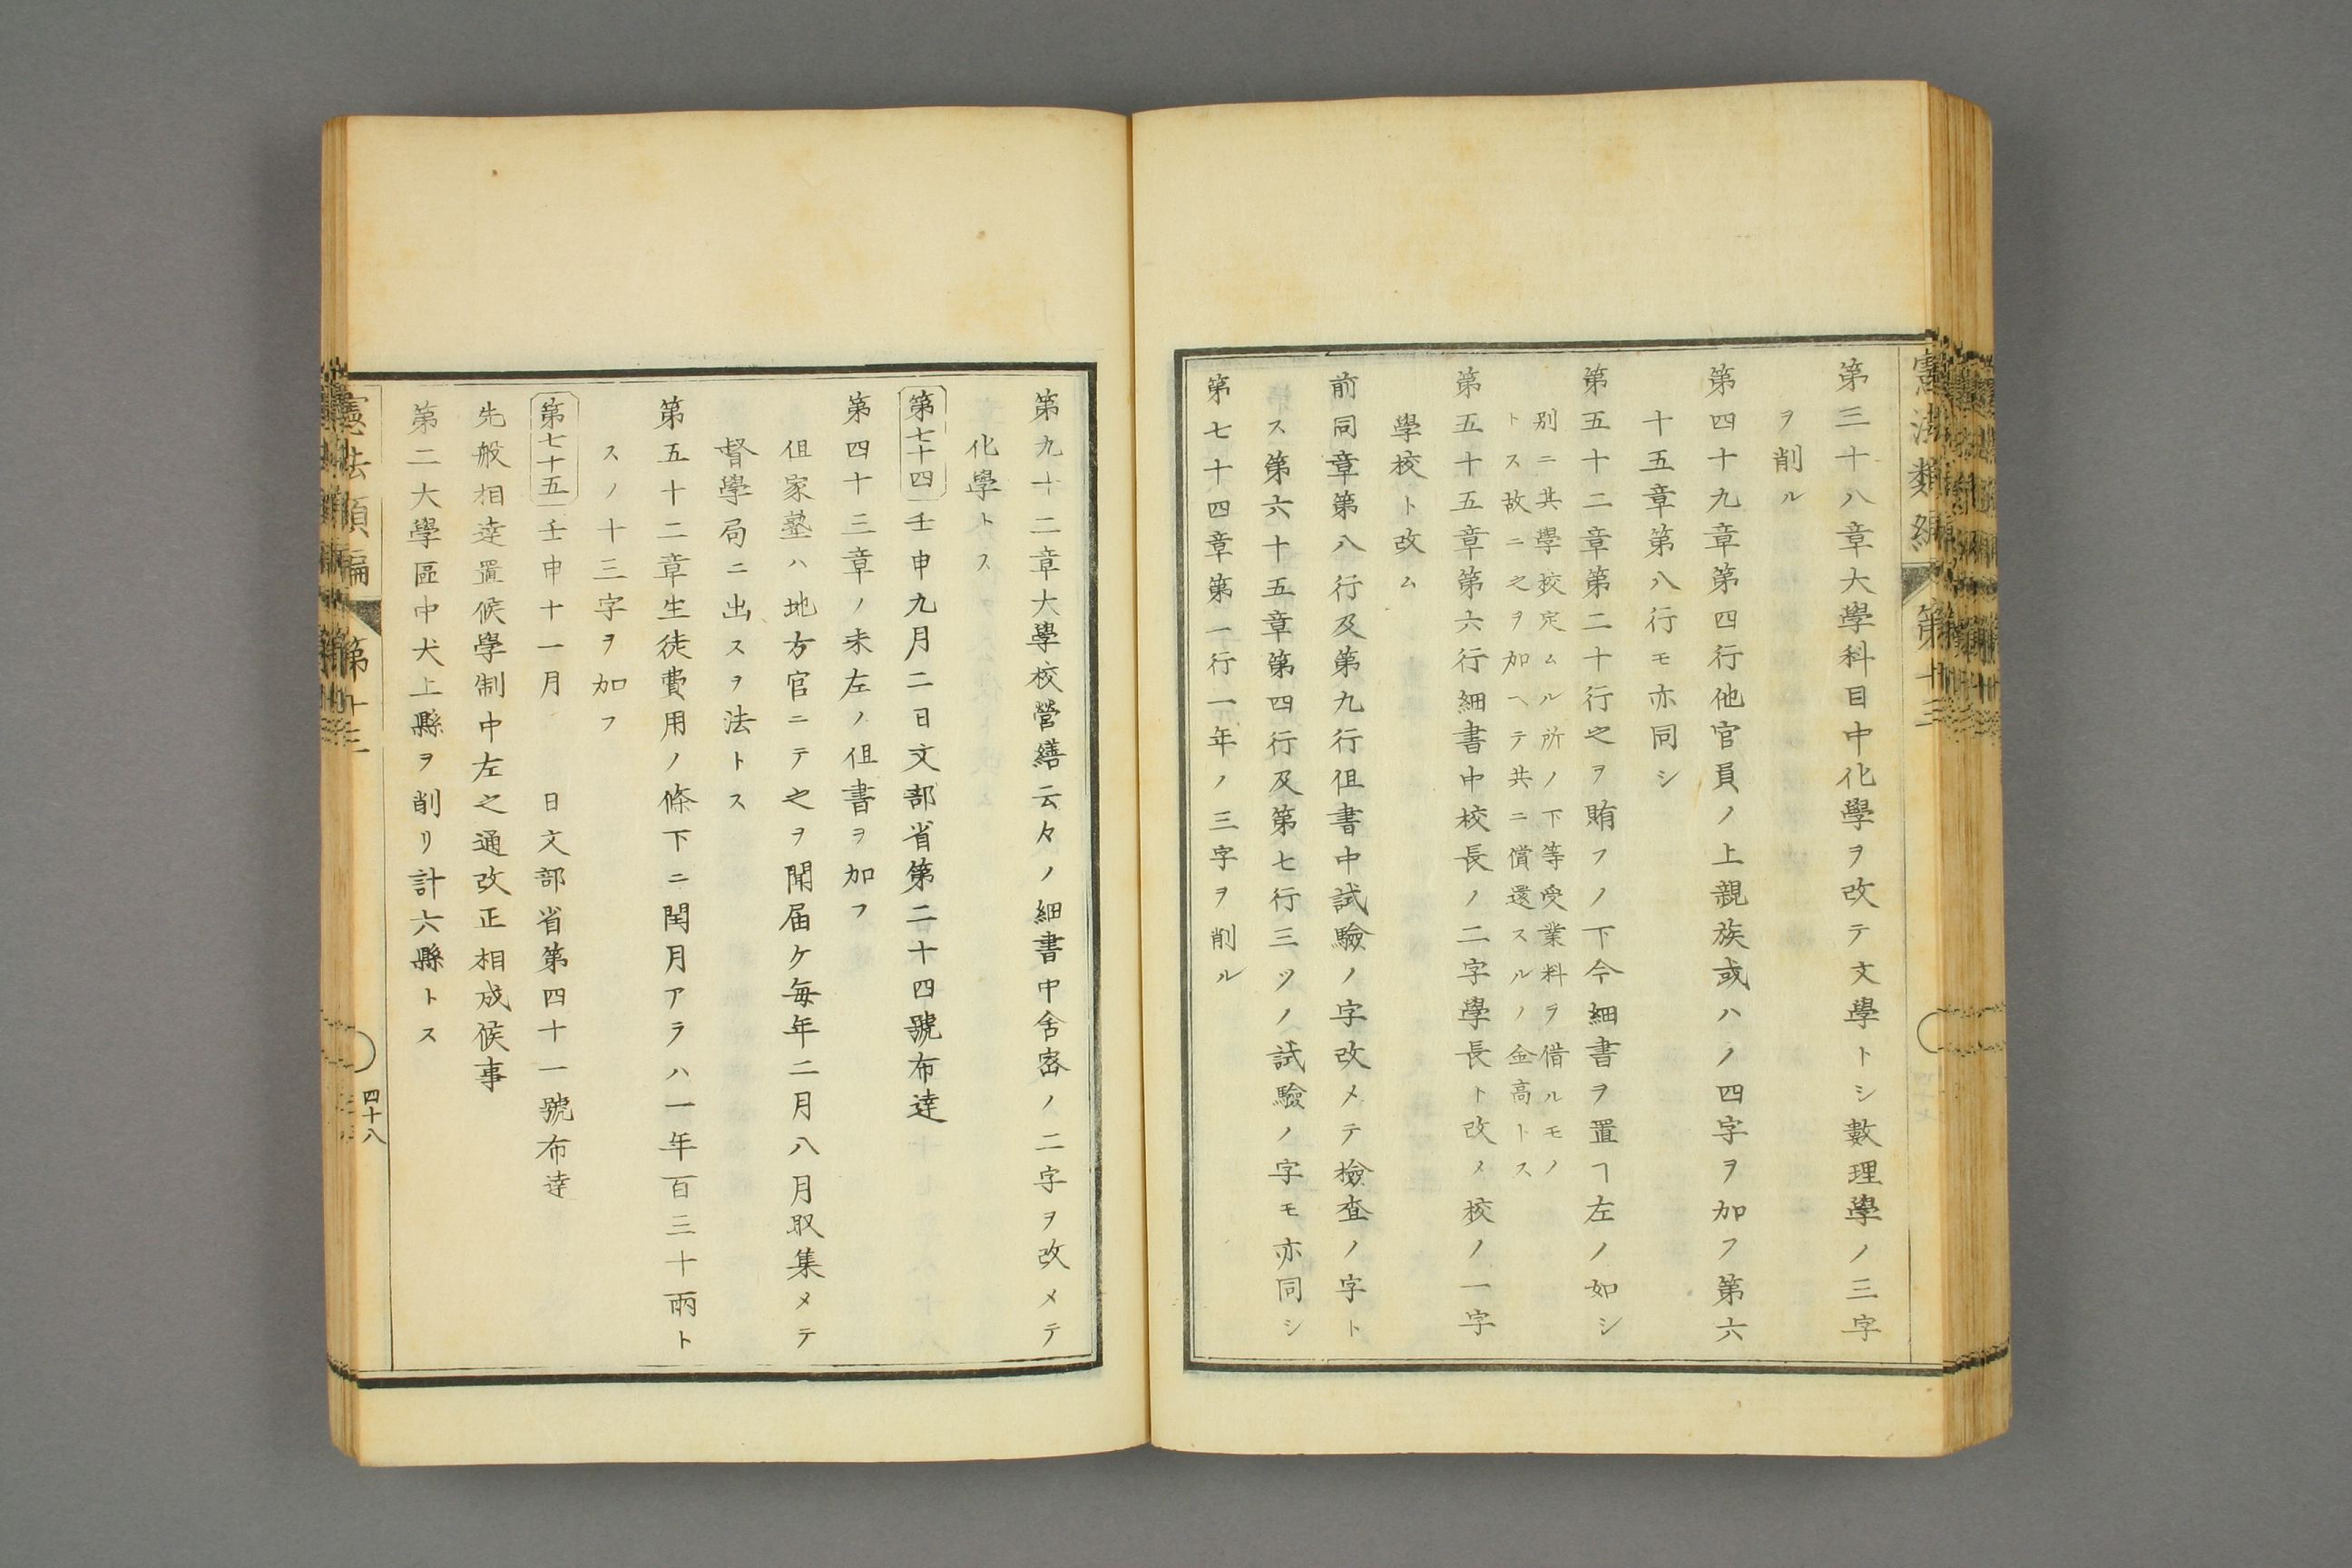 憲法類編 第十三
第三十八章大學科目中化學ヲ改テ文學トシ數理學ノ三字
ヲ削ル
第四十九章第四行他官員ノ上親族或ハノ四字ヲ加フ第六
十五章第八行モ亦同シ
第五十二章第二十行之ヲ賄フノ下今細書ヲ置ヿ左ノ如シ
別ニ其學校定ムル所ノ下等受業料ヲ借ルモノ
トス故ニ之ヲ加ヘテ共ニ償還スルノ金高トス
第五十五章第六行細書中校長ノ二字學長ト改メ校ノ一字
學校ト改ム
前同章第八行及第九行但書中試驗ノ字改メテ檢査ノ字ト
ス第六十五章第四行及第七行三ツノ試驗ノ字モ亦同シ
第七十四章第一行一年ノ三字ヲ削ル
第九十二章大學校營繕云々ノ細書中舍密ノ二字ヲ改メテ
化學トス
第七十四 壬申九月二日文部省第二十四號布達
第四十三章ノ末左ノ但書ヲ加フ
但家塾ハ地方官ニテ之ヲ聞届ケ毎年二月八月取集メテ
督學局ニ出スヲ法トス
第五十二章生徒費用ノ條下ニ閏月アラハ一年百三十兩ト
スノ十三字ヲ加フ
第七十五 壬申十一月 日文部省第四十一號布達
先般相達置候學制中左之通改正相成候事
第二大學區中犬上縣ヲ削リ計六縣トス
憲法類編 第十三
四十八